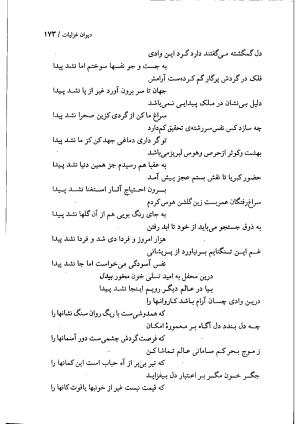 دیوان غزلیات / ۱۷۳
دل گمگشته می‌گفتند دارد گرد این وادی
به جست و جو نفسها سوختم اما نشد پیدا
فلک در گردش پرگار گم کرده‌ست آرامش
جهان تا سر برون آورد غیر از پا نشد پیدا
دلیل بی‌نشان در ملک پیدایی نمی‌باشد
سراغ ما کن از گردی کزین صحرا نشد پیدا
چه سازد کس نفس سررشتهٔ تحقیق کم دارد
تو گر داری دماغی جهد کن کز ما نشد پیدا
بهشت و کوثر از حرص و هوس لبریز می‌باشد
به عقبا هم رسیدم جز همین دنیا نشد پیدا
حضور کبریا تا نقش بستم عجز پیش آمد
برون احتیاج آثار استغنا نشد پیدا
سراغ رفتگان عمریست زین گلشن هوس کردم
به جای رنگ بویی هم از آن گلها نشد پیدا
به ذوق جستجو می‌باید از خود تا ابد رفتن
هزار امروز و فردا دی شد و فردا نشد پیدا
غم این تنگنایم برنیاورد از پریشانی
نفس آسودگی می‌خواست اما جا نشد پیدا
درین محفل به امید تسلی خون مخور بیدل
بیا در عالم دیگر رویم اینجا نشد پیدا
درین وادی چسان آرام باشد کاروانها را
که همدوشی‌ست با ریگ روان سنگ نشانها را
چه دل بندد دل آگاه بر معمورهٔ امکان
که فرصت گردش چشمی‌ست دور آسمانها را
ز موج بحر کم سامانی عالم تماشا کن
که تیر بی‌پر از آه حباب است این کمانها را
جگر خون مگر بر اعتبار دل بیفزاید
که قیمت نیست غیر از خونبها یاقوت کانها را